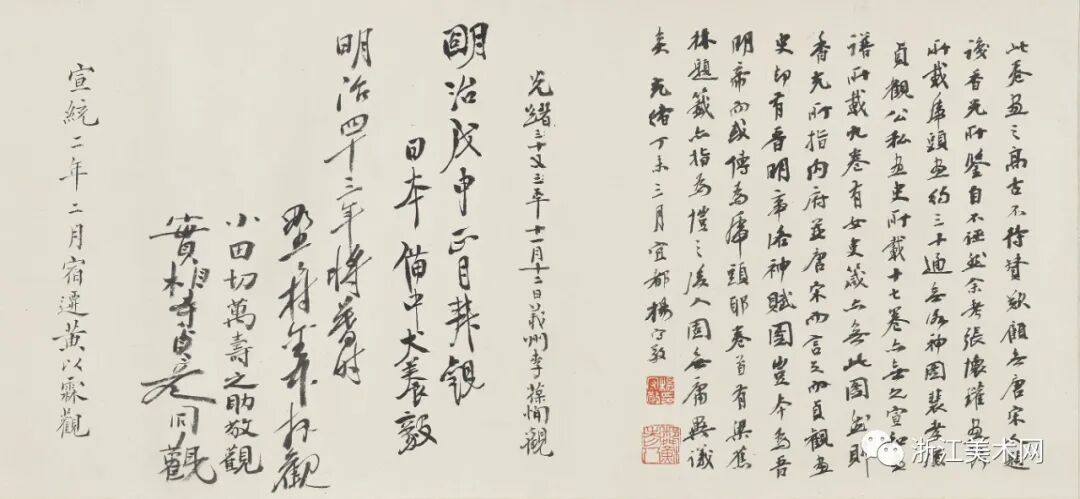 此卷畫之高古不待贊歎顧無唐宋題
後香光所鑒自不誣然余考張懷瓘畫
所載虎頭畫約三十通無洛神圖裴孝源
貞觀公私畫史所載十七卷亦無之宣和畫
譜所載九卷有女史箴亦無此圖然則
香光所指內府並唐宋而言之而貞觀畫
史即有晉明帝洛神賦圖豈本為晉
明帝而或傳為虎頭耶卷首有梁蕉
林題籤亦指為愷之後人固無庸異議
矣 光緒丁未三月宜都楊守敬
光緒三十又三年十一月十二日義州李葆恂觀
明治戊申正月拜觀
日本備中犬養毅
明治四十三年將暮時
拜觀
小田切萬壽之助敬觀
同觀
宣統二年二月宿遷黃以霖觀
浙江美术网